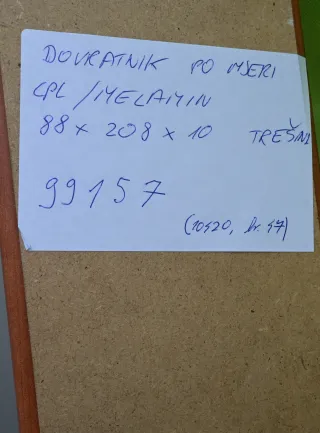 DOVRATNIK PO MJERI
CPL / MELAMIN
88 x 208 x 10 TREŠNJ
99157
(10920, br. 47)